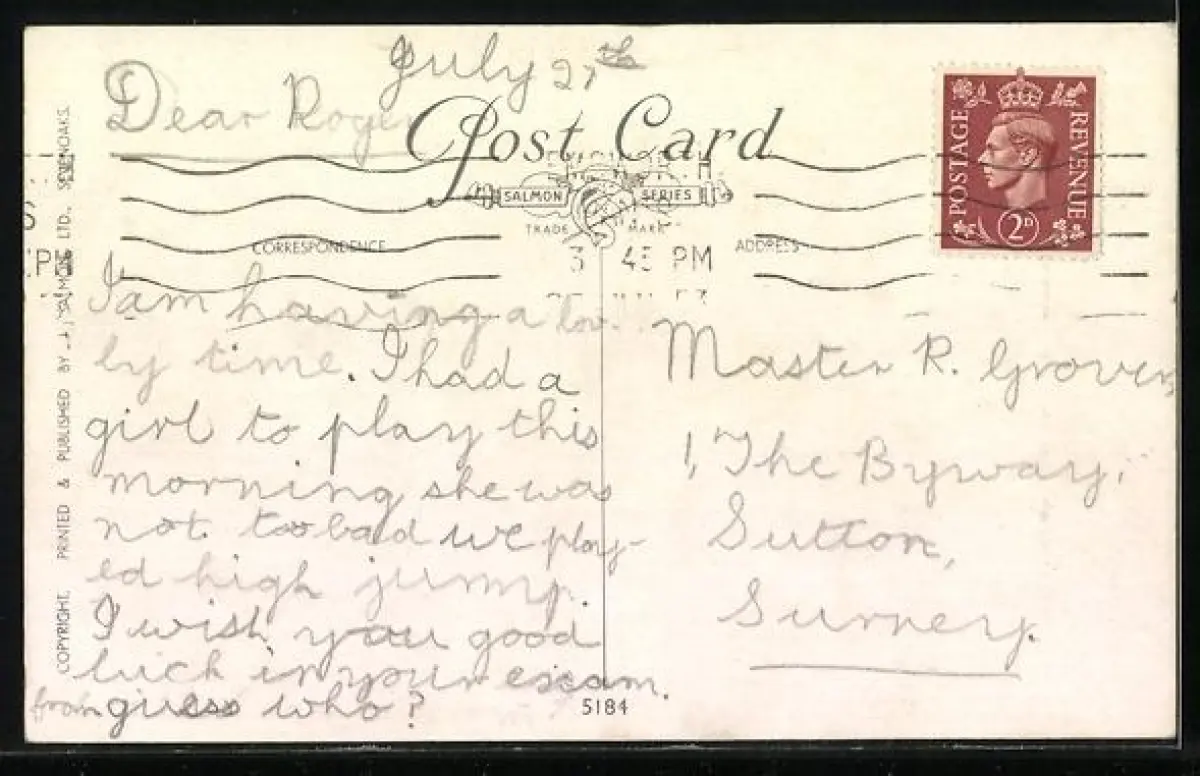 July 27th
Dear Roger
Post Card
SALMON SERIES
TRADE MARK
CORRESPONDENCE
ADDRESS
3 45 PM
PM
POSTAGE REVENUE
2D
I am having a lov
ly time. I had a
girl to play this
morning she was
not too bad we play-
ed high jump.
I wish you good
luck in your exam.
from guess who?
Master R. Grover,
1, The Byway,
Sutton,
Surrey.
5184
COPYRIGHT. PRINTED & PUBLISHED BY J. SALMON LTD., SEVENOAKS.